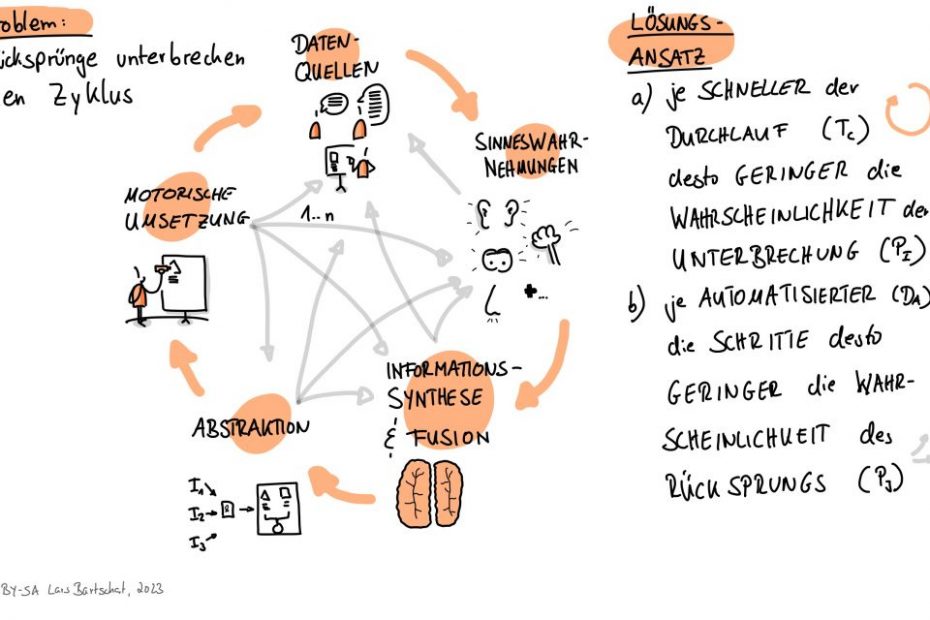 roblem:
ücksprünge unterbrechen
en Zyklus
DATEN-
QUELLEN
SINNESWAHR-
NEHMUNGEN
+...
INFORMATIONS-
SYNTHESE
& FUSION
ABSTRAKTION
I1
I2
I3
MOTORISCHE
UMSETZUNG
1..n
LÖSUNGS-
ANSATZ
a) je SCHNELLER der
DURCHLAUF (Tc)
desto GERINGER die
WAHRSCHEINLICHKEIT der
UNTERBRECHUNG (PI)
b) je AUTOMATISIERTER (DA)
die SCHRITTE desto
GERINGER die WAHR-
SCHEINLICHKEIT des
RÜCKSPRUNGS (PJ)
BY-SA Lars Bartschat, 2023